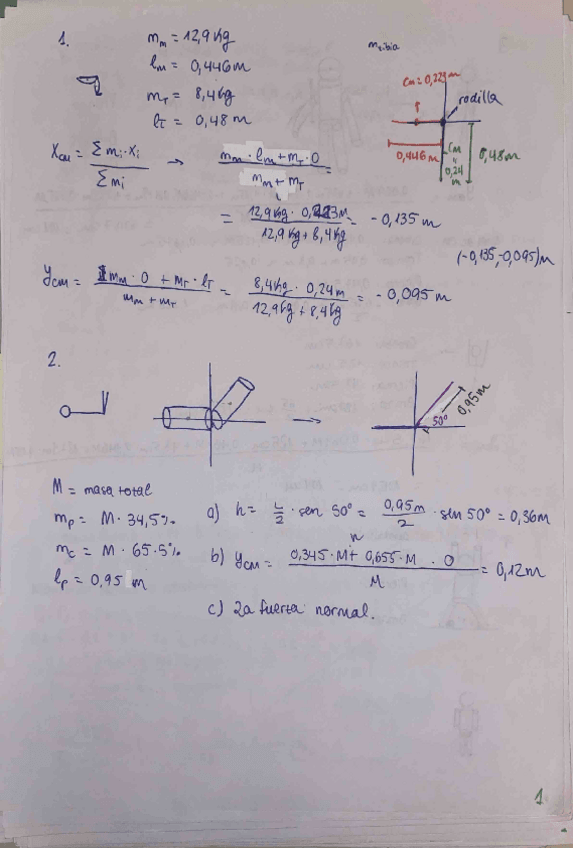 1.
m_m = 12,9 kg
l_m = 0,446 m
m_T = 8,4 kg
l_T = 0,48 m
m tibia
CM = 0,223 m
rodilla
0,446 m
CM = 0,24 m
0,48 m
X_CM = Σ m_i · x_i / Σ m_i → (m_m · l_m + m_T · 0) / (m_m + m_T) =
= (12,9 kg · 0,223 m) / (12,9 kg + 8,4 kg) = - 0,135 m
(-0,135, -0,095) m
Y_CM = (m_m · 0 + m_T · l_T) / (m_m + m_T) = (8,4 kg · 0,24 m) / (12,9 kg + 8,4 kg) = - 0,095 m
2.
50°
0,95 m
M = masa total
m_p = M · 34,5%
m_c = M · 65.5%
l_p = 0,95 m
a) h = L/2 · sen 50° = 0,95 m / 2 · sen 50° = 0,36 m
b) y_CM = (0,345 · M + 0,655 · M · 0) / M = 0,12 m
h
c) La fuerza normal.
1